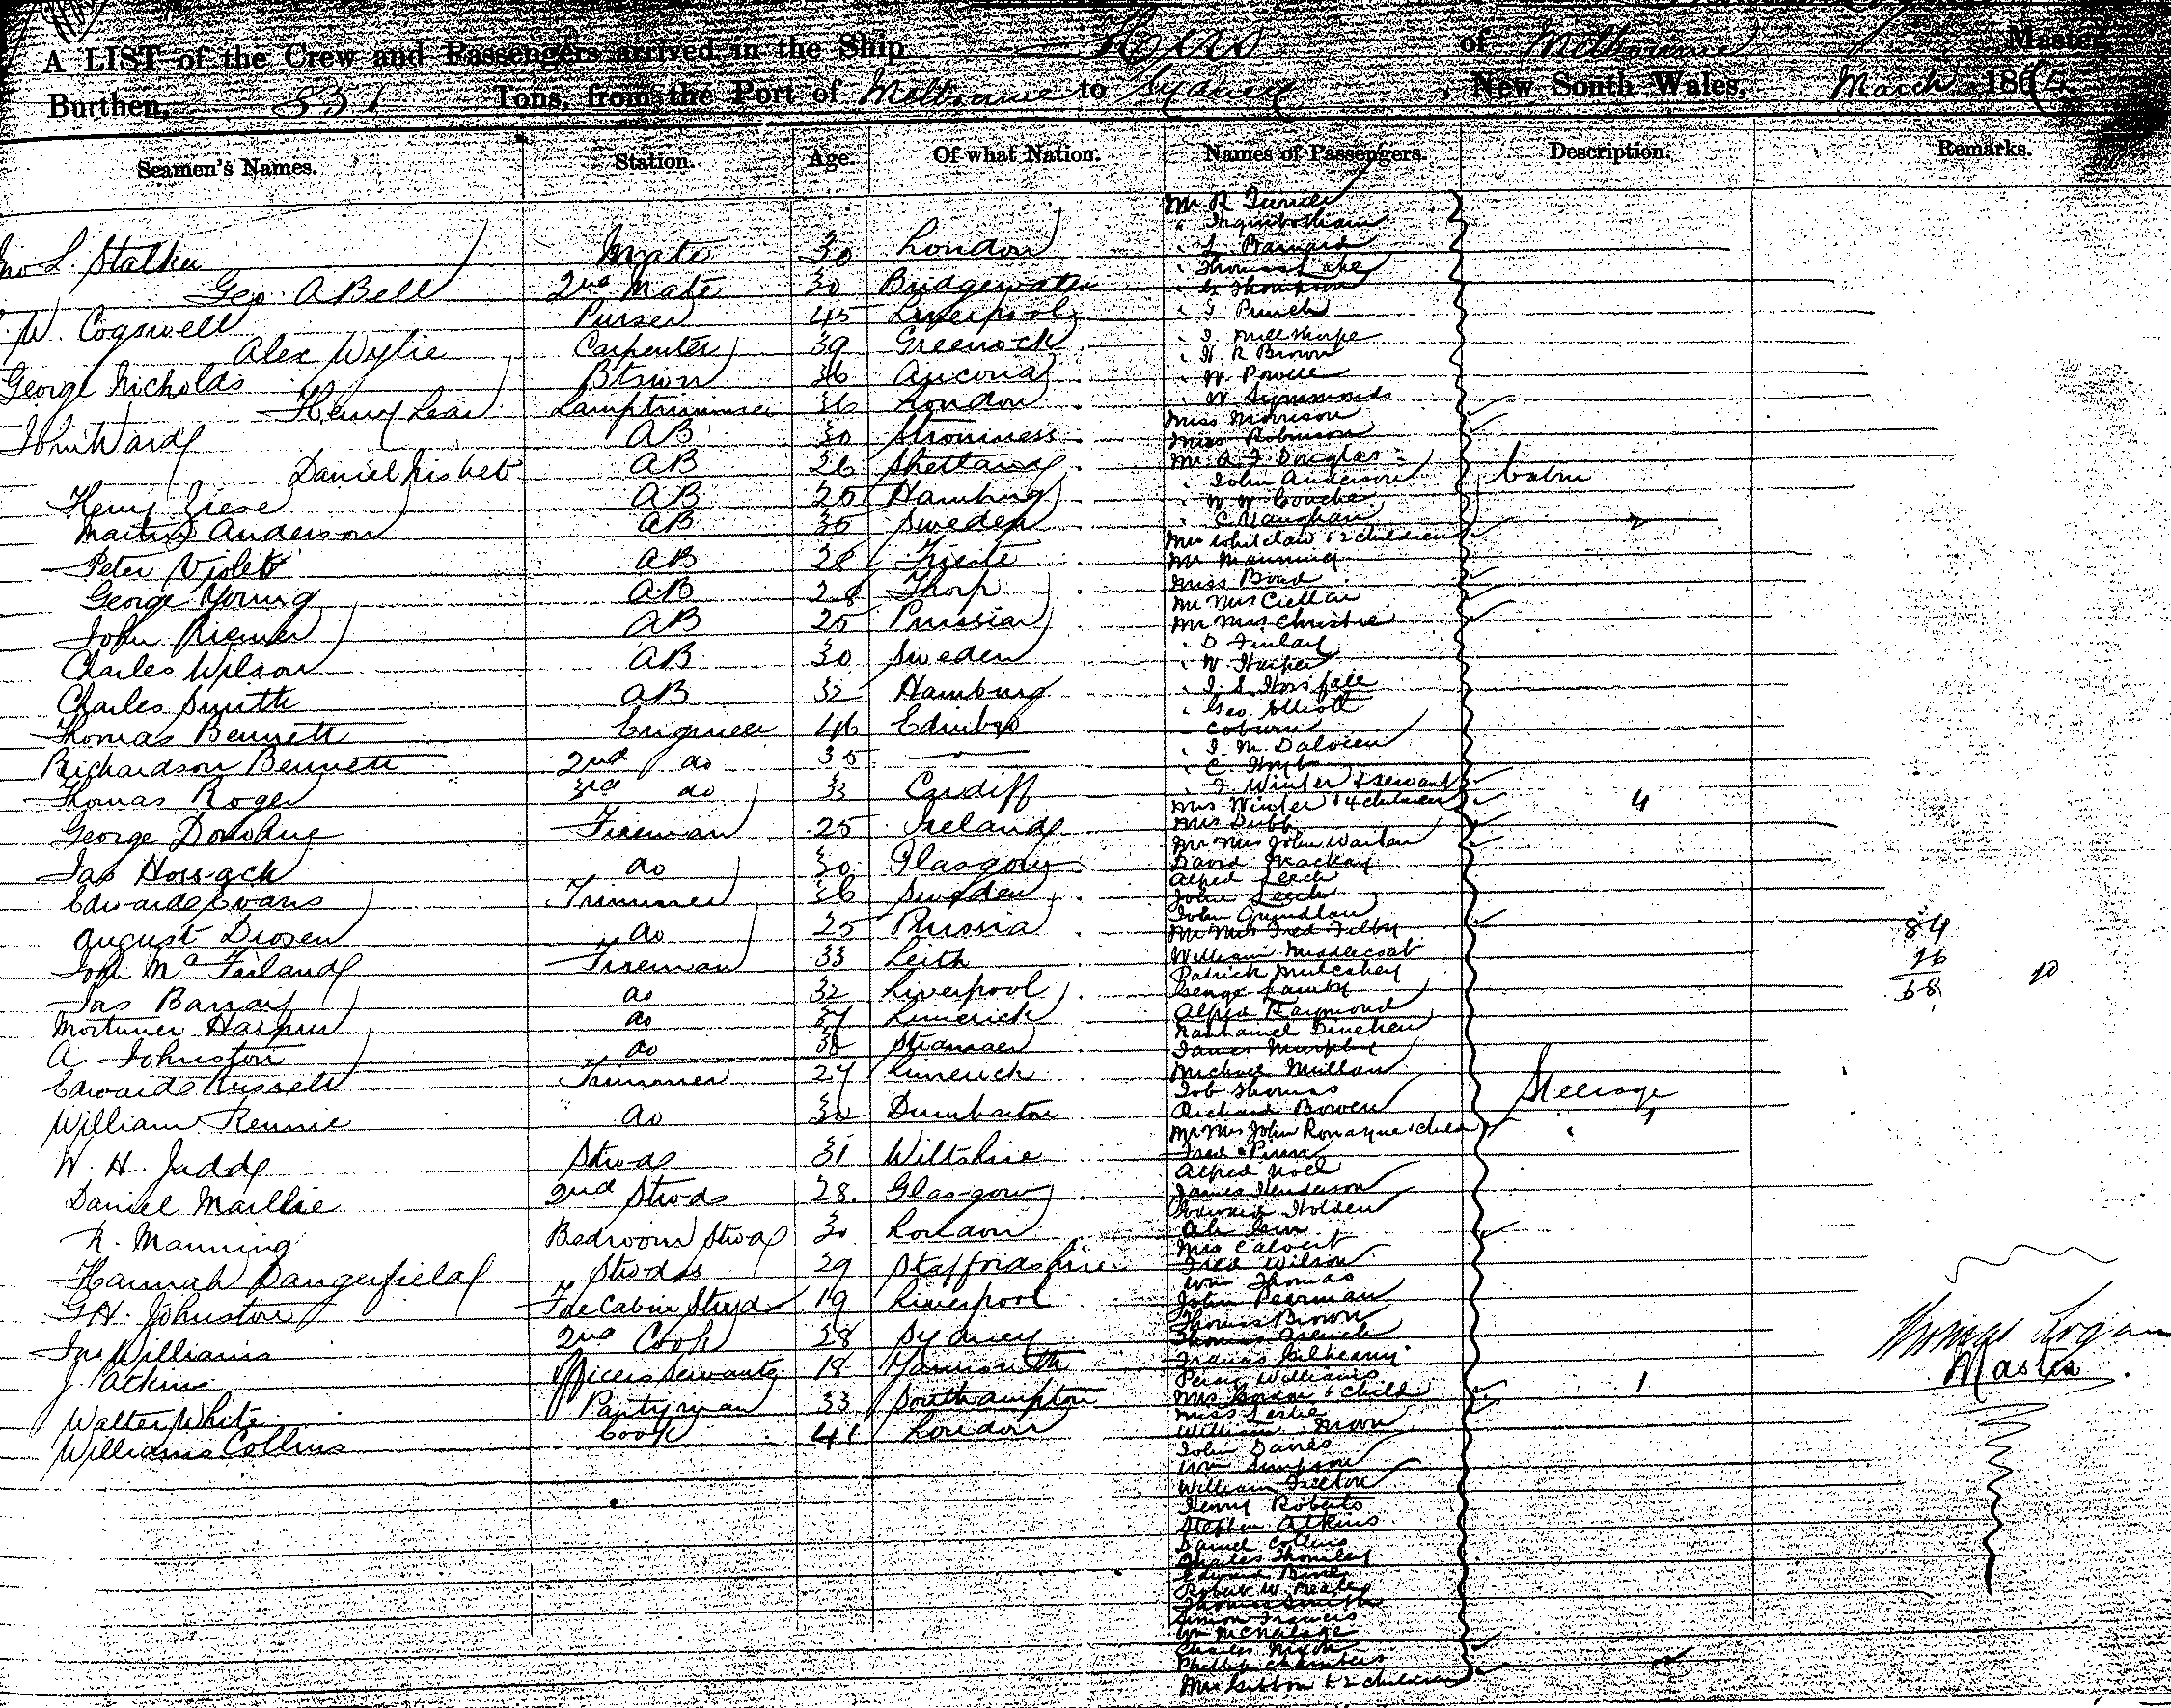 A LIST of the Crew and Passengers arrived in the Ship of Melbourne Master,
Burthen, 351 Tons, from the Port of Melbourne to Sydney, New South Wales, March 186
Seamen's Names. Station. Age. Of what Nation. Names of Passengers. Description. Remarks.
Mr R Turner
Jno L. Stalker Mate 30 London
" L. Barnard
" Thomas Lake
Geo. A Bell 2nd Mate 30 Bridgewater
" G Thompson
W. Cogswell Purser 45 Liverpool
" J Punch
Alex Wylie Carpenter 39 Greenock
" J. Millthorpe
" H. R Brown
George Nicholds Btswn 36 Ancona
" W Powell
Henry Lear Lamptrimmer 36 London
" W Symmonds
Miss Morrison
John Ward AB 30 Stromness
Miss Robinson
Daniel Nisbet AB 26 Shetland
Mr A. J Douglas
" John Anderson Cabin
Henry Ziese AB 25 Hamburg
" W W Couche
Martin Anderson AB 35 Sweden
" C Vaughan 2
Mrs Whitelaw & 2 children
Peter Violet AB 28 Trieste
Mr Manning
George Young AB 28 Thorp
Miss Bond
John Riemer AB 25 Prussia
Mr Mrs Christie
" D Finlay
Charles Wilson AB 30 Sweden
" W Harper
Charles Smith AB 32 Hamburg
" J. S. Horsfall
" Geo. Elliott
Thomas Bennett Engineer 46 Edinbro
" Coburn
Richardson Bennett 2nd do 35
" J. M. Dalvien
Thomas Roger 3rd do 33 Cardiff
" J Winter & servant
Mrs Winter & 4 children 4
George Donohue Fireman 25 Ireland
Mrs Dubb
Mr Mrs John Warton
Jas Hossack do 30 Glasgow
David Mackay
Alfred Leech
Edward Evans Trimmer 36 Sweden
John Leech
John Grundlan
August Drosen do 25 Russia
Mr Mrs Fred Filby 84
John McFarland Fireman 33 Leith
William Middlecoat 16
Patrick Mulcahey
Jas Barray do 32 Liverpool
George Lamby 68 20
Alfred Raymond
Mortimer Halpin do 37 Limerick
Nathaniel Dinehen
A. Johnston do 38 Stranraer
James Murphy
Edward Russell Trimmer 27 Limerick
Michael Mullan
Job Thomas Steerage
William Rennie do 30 Dumbarton
Richard Bowen
Mr Mrs John Ronayne & child
W. H. Judd Stwds 31 Wiltshire
Fred Pierse
Alfred Noel
Daniel Maillie 2nd Stwds 28 Glasgow
James Henderson
Edward Holden
R. Manning Bedroom Stwd 30 London
Mrs Calvert
Hannah Dangerfield Stwdss 29 Staffordshire
Fred Wilson
Wm Thomas
G. H. Johnston Fore Cabin Stwd 19 Liverpool
John Pearman
Thomas Brown
Jno Williams 2nd Cook 28 Sydney
Thomas French
Thomas Logan
J. Atkins Officers Servant 18 Yarmouth
Percy Williams
Master
Walter White Pantryman 33 Southampton
& Child 1
Miss Leslie
William Collins Cook 41 London
William Moon
John Davies
Wm Simpson
William Felton
Henry Roberts
Stephen Atkins
Daniel Collins
Charles Thornley
Robert W. Beale
Thomas Smith
Simon Francis
Charles Nixon
Phillip Chambers
Mrs Gibbon & 2 children